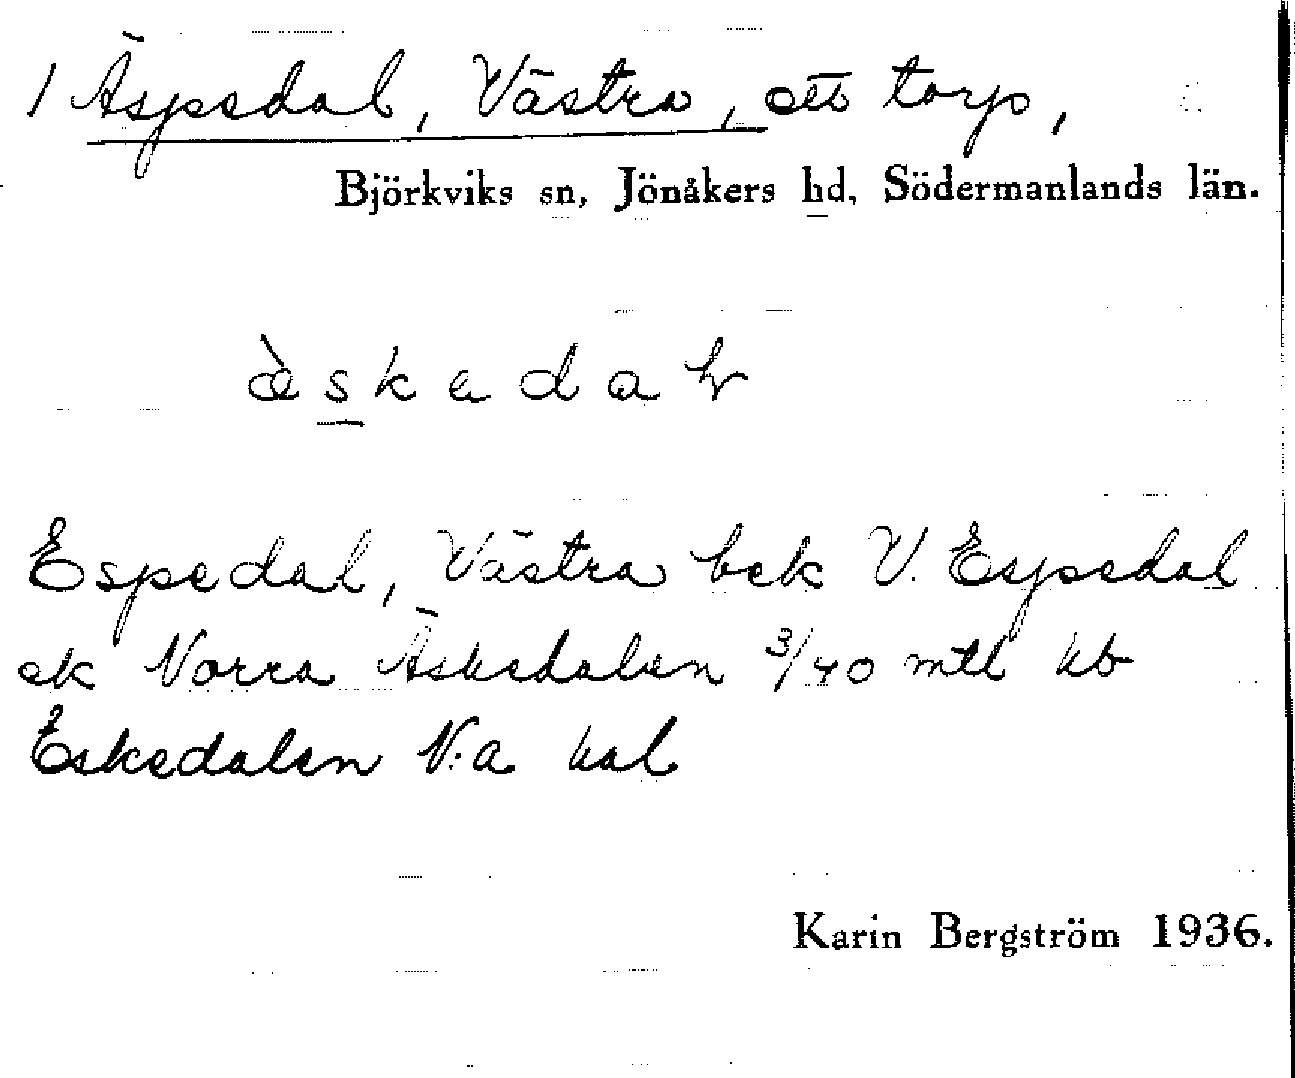 1 Äspedal, Västra, ett torp,
Björkviks sn, Jönåkers hd, Södermanlands län.
æ̀skedaɫ
Espedal, Västra bek V. Espedal
ek Norra Äskedalen 3/40 mtl kb
Eskedalen N:a hal
Karin Bergström 1936.